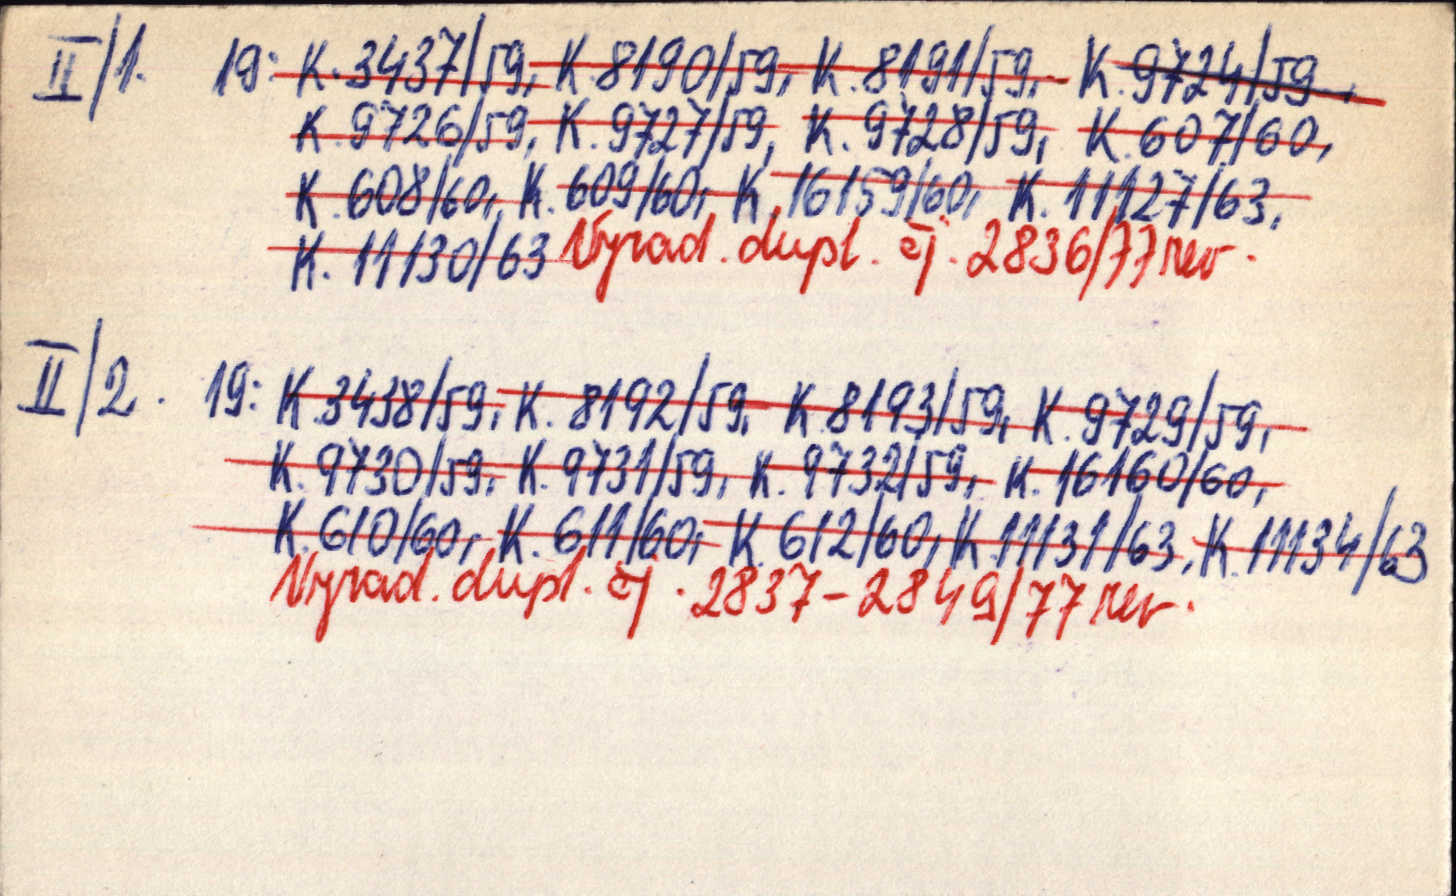 II/1. 19: K. 3437/59, K. 8190/59, K. 8191/59, K. 9724/59,
K. 9726/59, K. 9727/59, K. 9728/59, K. 607/60,
K. 608/60, K. 609/60, K. 16159/60, K. 11127/63,
K. 11130/63 Vyrad. dupl. čj. 2836/77 rev.
II/2. 19: K. 3438/59, K. 8192/59, K. 8193/59, K. 9729/59,
K. 9730/59, K. 9731/59, K. 9732/59, K. 16160/60,
K. 610/60, K. 611/60, K. 612/60, K. 11131/63, K. 11134/63
Vyrad. dupl. čj. 2837-2849/77 rev.